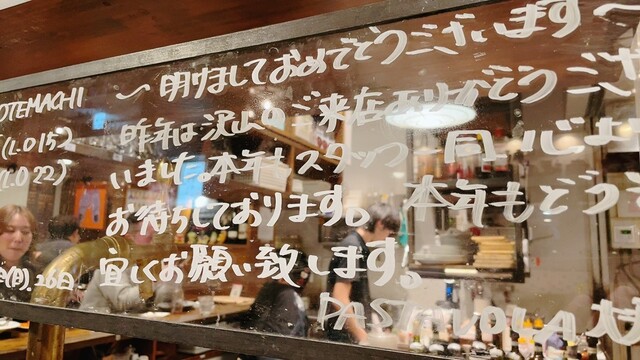 OTEMACHI
(L.O 15
(L.O 22)
(月), 26日
〜 明けましておめでとうございます〜
昨年は沢山のご来店ありがとうござ
いました。本年もスタッフ一同心よ
お待ちしております。本年もどうぞ
宜しくお願い致します!
PASTAVOLA大